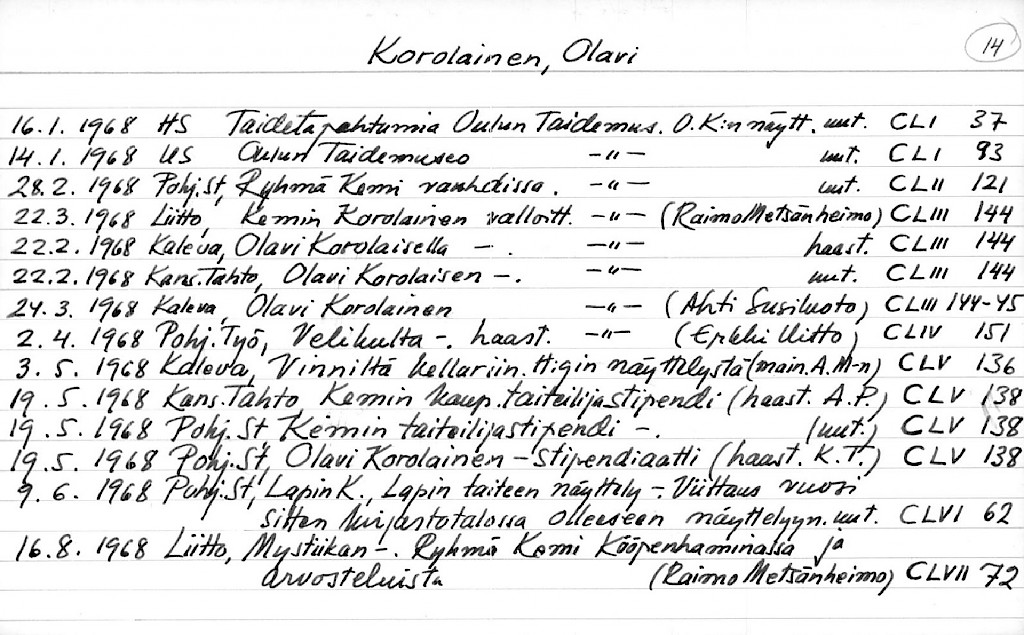 14
Korolainen, Olavi
16.1. 1968 HS Taidetapahtumia Oulun Taidemus. O.K:n näytt. uut. CLI 37
14.1. 1968 US Oulun Taidemuseo -"- uut. CLI 93
28.2. 1968 Pohj.St, Ryhmä Kemi vauhdissa. -"- uut. CLII 121
22.3. 1968 Liitto, Kemin Korolainen valloitt. -"- (Raimo Metsänheimo) CLIII 144
22.2. 1968 Kaleva, Olavi Korolaisella -. -"- haast. CLIII 144
22.2. 1968 Kans.Tahto, Olavi Korolaisen -. -"- uut. CLIII 144
24.3. 1968 Kaleva, Olavi Korolainen -"- (Ahti Susiluoto) CLIII 144-45
2.4. 1968 Pohj.Työ, Velikulta -. haast. -"- (Erkki Uitto) CLIV 151
3.5. 1968 Kaleva, Vinniltä kellariin. H:gin näyttelystä (main. A.M-n) CLV 136
19.5. 1968 Kans.Tahto, Kemin kaup. taiteilijastipendi (haast. A.P.) CLV 138
19.5. 1968 Pohj.St, Kemin taiteilijastipendi -. (uut.) CLV 138
19.5. 1968 Pohj.St, Olavi Korolainen - Stipendiaatti (haast. K.T.) CLV 138
9.6. 1968 Pohj.St, Lapin K., Lapin taiteen näyttely -. Viittaus vuosi
sitten kirjastotalossa olleeseen näyttelyyn. uut. CLVI 62
16.8. 1968 Liitto, Mystiikan -. Ryhmä Kemi Kööpenhaminassa ja
arvosteluista (Raimo Metsänheimo) CLVII 72